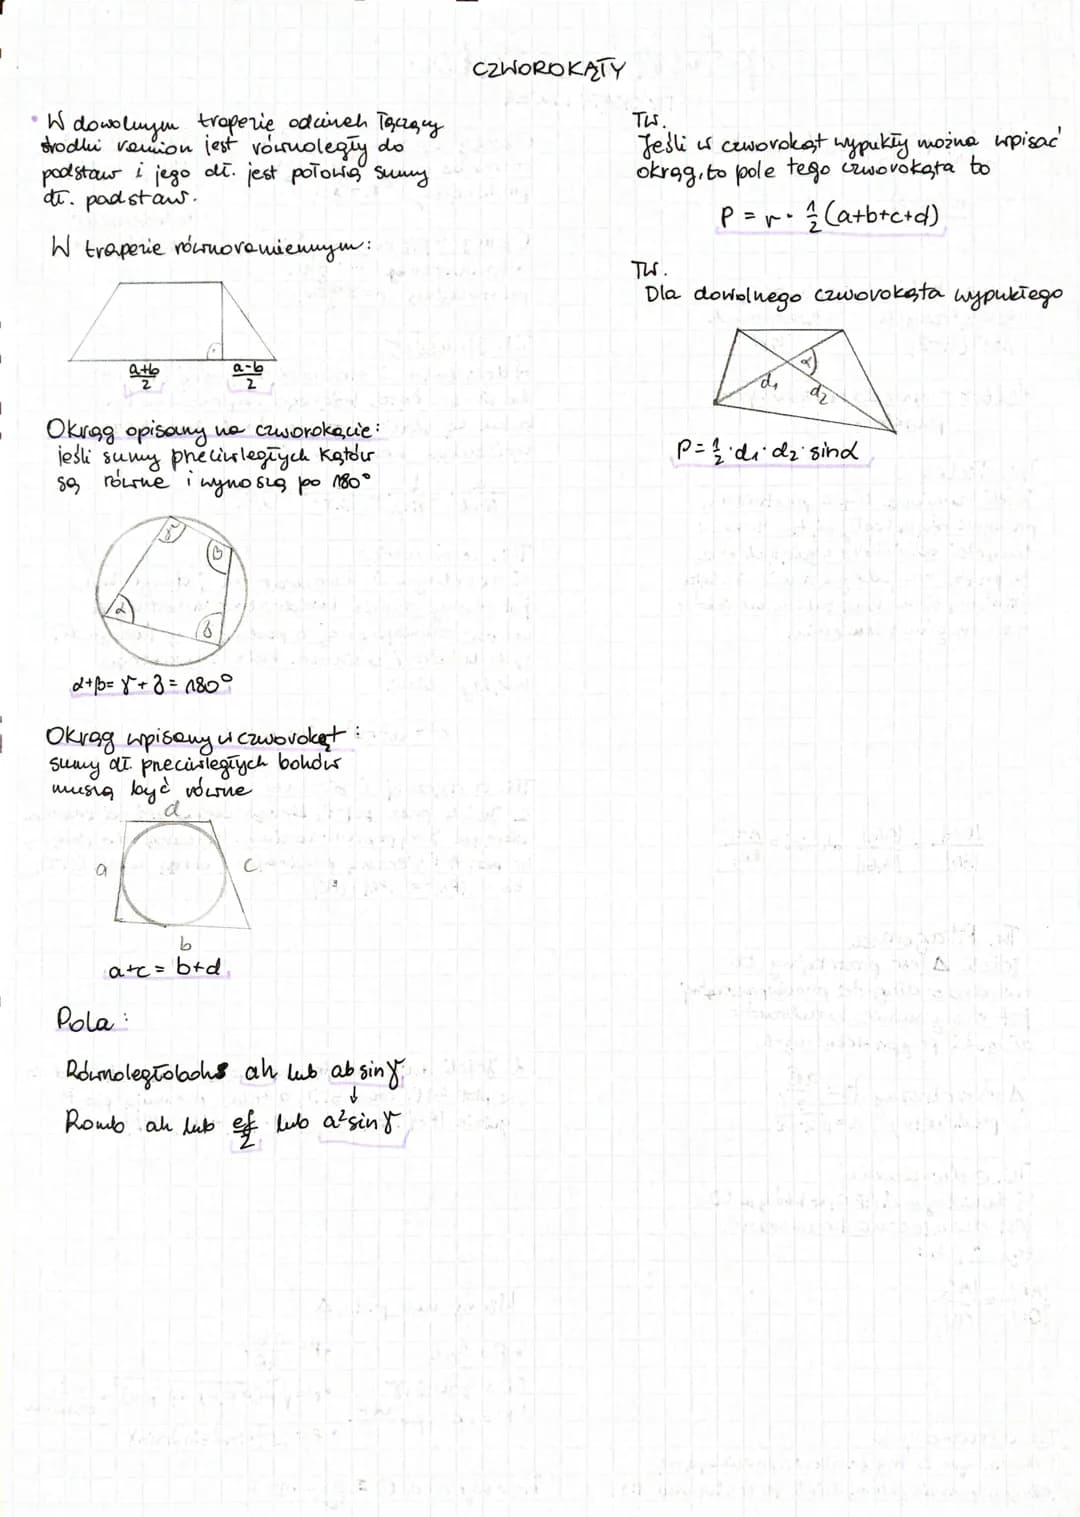 CZWOROKĄTY
• W dowolnym trapezie odcinek łączący
środki ramion jest równoległy do
podstaw i jego dł. jest połową sumy
dł. podstaw.
W trapezie równoramiennym:
a+b/2
a-b/2
Okrąg opisany na czworokącie:
jeśli sumy przeciwległych kątów
są równe i wynoszą po 180°
γ
β
α
δ
α+β=γ+δ=180°
Okrąg wpisany w czworokąt:
sumy dł. przeciwległych boków
muszą być równe
d
a
c
b
a+c = b+d
Pola:
Równoległobok ah lub ab sinγ
↓
Romb ah lub ef/2 lub a²sinγ
Tw.
Jeśli w czworokąt wypukły można wpisać
okrąg, to pole tego czworokąta to
P = r · 1/2 (a+b+c+d)
Tw.
Dla dowolnego czworokąta wypukłego
α
d₁
d₂
P = 1/2 · d₁ · d₂ · sinα